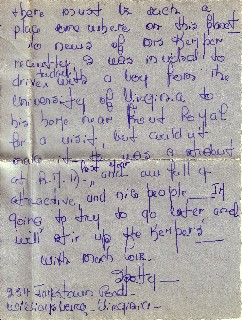 there must be such a
place some where on this planet
no news of Mrs Kerper
recently. I was invited to
drive today with a boy from the
University of Virginia to
his home near Front Royal
for a visit, but could not
make it. He was a student
at R.M.A. last year and am full of
attractive, and nice people I'm
going to try to go later and
will stir up the Kerper's
with much love.
234 Jamestown Road
Williamsburg, Virginia